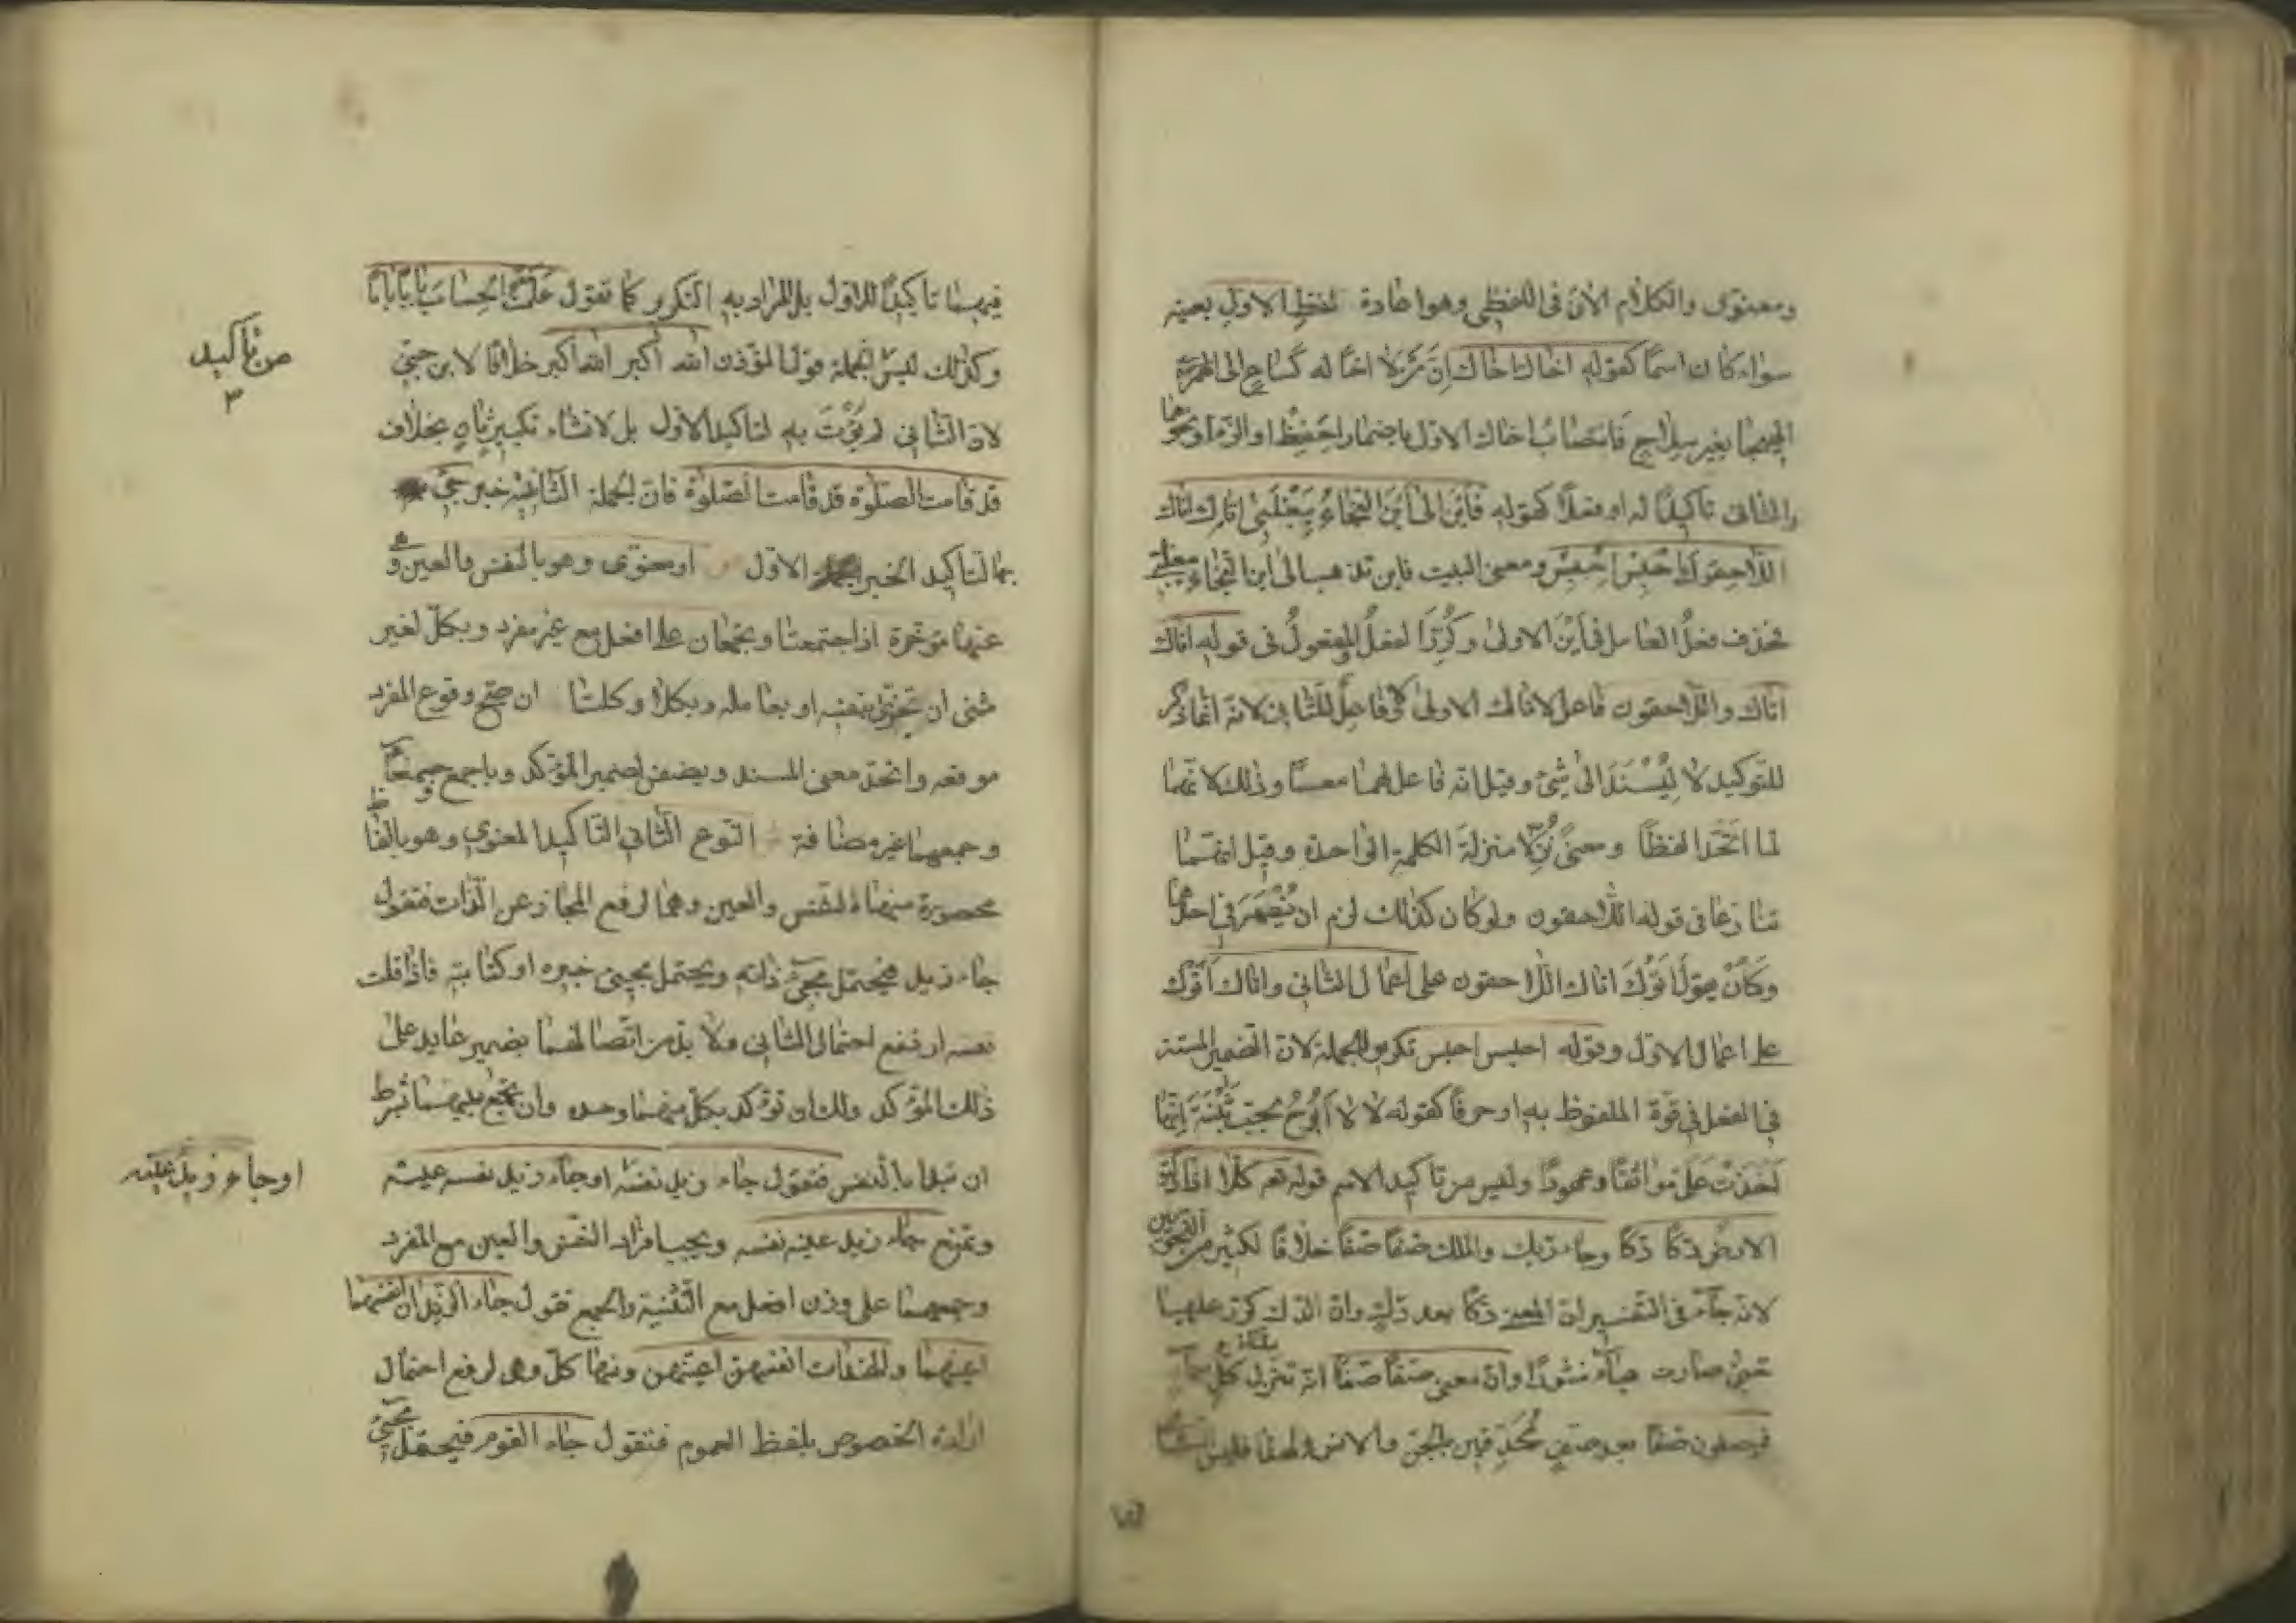 ومعنوى والكلام الان فى اللفظى وهو اعادة لفظ الاول بعينه
سواء كان اسما كقوله اخاك اخاك اِنّ مَن لا اخًا له كساعٍ الى الهيجا
الهيجا بغير سلاح فانتصاب اخاك الاول باضمار اِحفِظ او الزم او نحوهما
والثانى تاكيدًا له او فعلًا كقوله فاَينَ الى اَينَ النجاءُ بِبَغْلَتِى اتاك اتاك
اللاحقوك اِحبِس اِحبِس ومعنى البيت فاين تذهب الى اين النجاء ببغلتى
فحذف فعلُ العامل فى اَينَ الاولى وكُرّرَ الفعلُ والمفعولُ فى قوله اتاك
اتاك واللاحقون فاعل لاتاك الاولى لا فاعلٌ للثانى لانه انما ذكر
للتوكيد لا لِيُسْنَدَ الى شئ وقيل انه فاعل لهما معًا وذلك لانهما
لما اتّحدا لفظًا ومعنىً نُزِّلا منزلةَ الكلمة الواحدة وقيل انهما
تنازعا فى قوله اللاحقون ولو كان كذلك لزم ان يُضْمَرَ فى احدهما
وكَانَ يقول اَتَوْكَ اتاك اللاحقون على اعمال الثانى واتاك اَتَوْك
على اعمال الاول وقوله احبس احبس تكرير للجملة لان الضمير المستتر
فى الفعل فى قوة الملفوظ به او حرفًا كقوله لا لا اَبُوحُ بحبّ بَثْنَةَ اِنّها
اَخَذَتْ عَلَىّ مواثقًا وعهودًا وليس من تاكيد الاسم قوله تعـ كلّا اذا دكّت
الارضُ دكًّا دكًّا وجاء ربك والملك صفًّا صفًّا خلافًا لكثير من النحويين
لانه جاء فى التفسير ان المعنى دكًّا بعد دكٍّ وان الدك كرّر عليها
حتى صارت هباءً منثورًا وان معنى صفًّا صفًّا انه تنزل ملئكة كل سماء
فيصطفون صفًّا بعد صفٍّ مُحْدِقين بالجنّ والانس ولهذا فليس الثانى
فيهما
فيهما تاكيدًا للاول بل المراد به التكرير كما تقول عَلَّمْتُهُ الحِسابَ بابًا بابًا
وكذلك ليس الجملة قول المؤذن الله اكبر الله اكبر خلافًا لابن جنّى
لان الثانى لم يُؤْتَ به لتاكيد الاول بل لانشاء تكبيرٍ ثانٍ بخلاف
قد قامت الصلوة قد قامت الصلوة فان الجملة الثانية خبر جئ
بها لتاكيد الخبر الاول او معنوى وهو بالنفس والعين
عنها مؤخرة اذا اجتمعتا ويجمعان على افعل مع غير مفرد وبكلّ لغير
مثنى ان تجزّئ بنفسه او بعامله وبكلا وكلتا ان صحّ وقوع المفرد
موقعه واتّحد معنى المسند ويضفن لضمير المؤكد وباجمع وجمعاء
وجمعهما غير مضافة النوع الثانى التاكيد المعنوى وهو بالفاظ
محصورة منها النفس والعين وهما لرفع المجاز عن الذات فتقول
جاء زيد فيحتمل مجئ ذاته ويحتمل مجيئ خبره او كتابته فاذا قلت
نفسه ارتفع احتمال الثانى ولا بد من اتّصالهما بضمير عايد على
ذلك المؤكد ولك ان توكد بكل منهما وحده وان تجمع بينهما بشرط
ان تبدا بالنفس فتقول جاء زيد نفسه او جاء زيد نفسه عينه
ويمتنع جاء زيد عينه نفسه ويجب افراد النفس والعين مع المفرد
وجمعهما على وزن افعل مع التثنية والجمع فتقول جاء الزيدان انفسهما
اعينهما والهندات انفسهن اعينهن ومنها كلّ وهى لرفع احتمال
ارادة الخصوص بلفظ العموم فتقول جاء القوم فيحتمل مجئ
من تأكيد
٣
او جاء زيد عينه